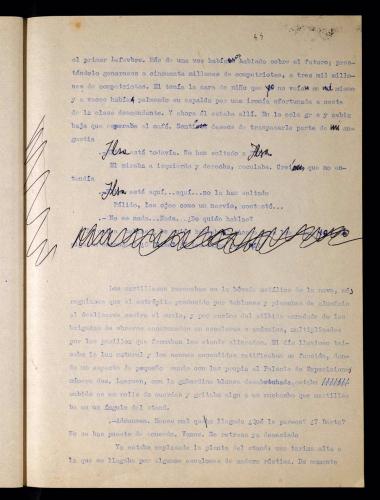 49
el primer Lefevbre. Más de una vez habíamos hablado sobre el futuro;
tándolo generosos a cincuenta millones de compatriotas, a tres mil millo-
nes de compatriotas. El tenía la cara de niño que yo no veía en mi mismo
y a veces había palmeado su espalda por una ironía afortunada a costa
de la clase descendente. Y ahora él estaba allí. En la cola gris y
baja que esperaba el café. Sentí deseos de traspasarle parte de mi an-
gustia
Ilsa está todavía. No han soltado a Ilsa
El miraba a izquierda y derecha, reculaba. que no en-
tendía
Ilsa está aquí...aquí...no la han soltado
Pálido, los ojos como un nervio, contestó...
-No es nada...Nada...¿De quién hablas?
Los martillazos resonaban en la bóveda metálica de la nave,
que el estrépito producido por tablones y planchas de aluminio
al deslizarse sobre el suelo, y por encima del
brigadas de obreros encaramados en escaleras o andamios, multiplicados
por los pasillos que formaban los stands alineados. El día lluvioso
la luz natural y los neones encendidos ratificaban su función, dan-
do un aspecto de pequeño mundo con luz propia al Palacio de Exposiciones
número dos. Laarsen, con la gabardina blanca desabotonada, estaba
subido en un rollo de cuerdas y gritaba algo a un muchacho que martillea-
ba en un ángulo del stand.
-Admunsen. Menos mal que has llegado ¿Qué te parece? ¿Y Berta?
No se han puesto de acuerdo. Vamos. No retrasa ya demasiado
Yo estaba empinado la planta del stand: una tarima alta a
la que se llegaba por algunos escalones de madera rústica. De momento